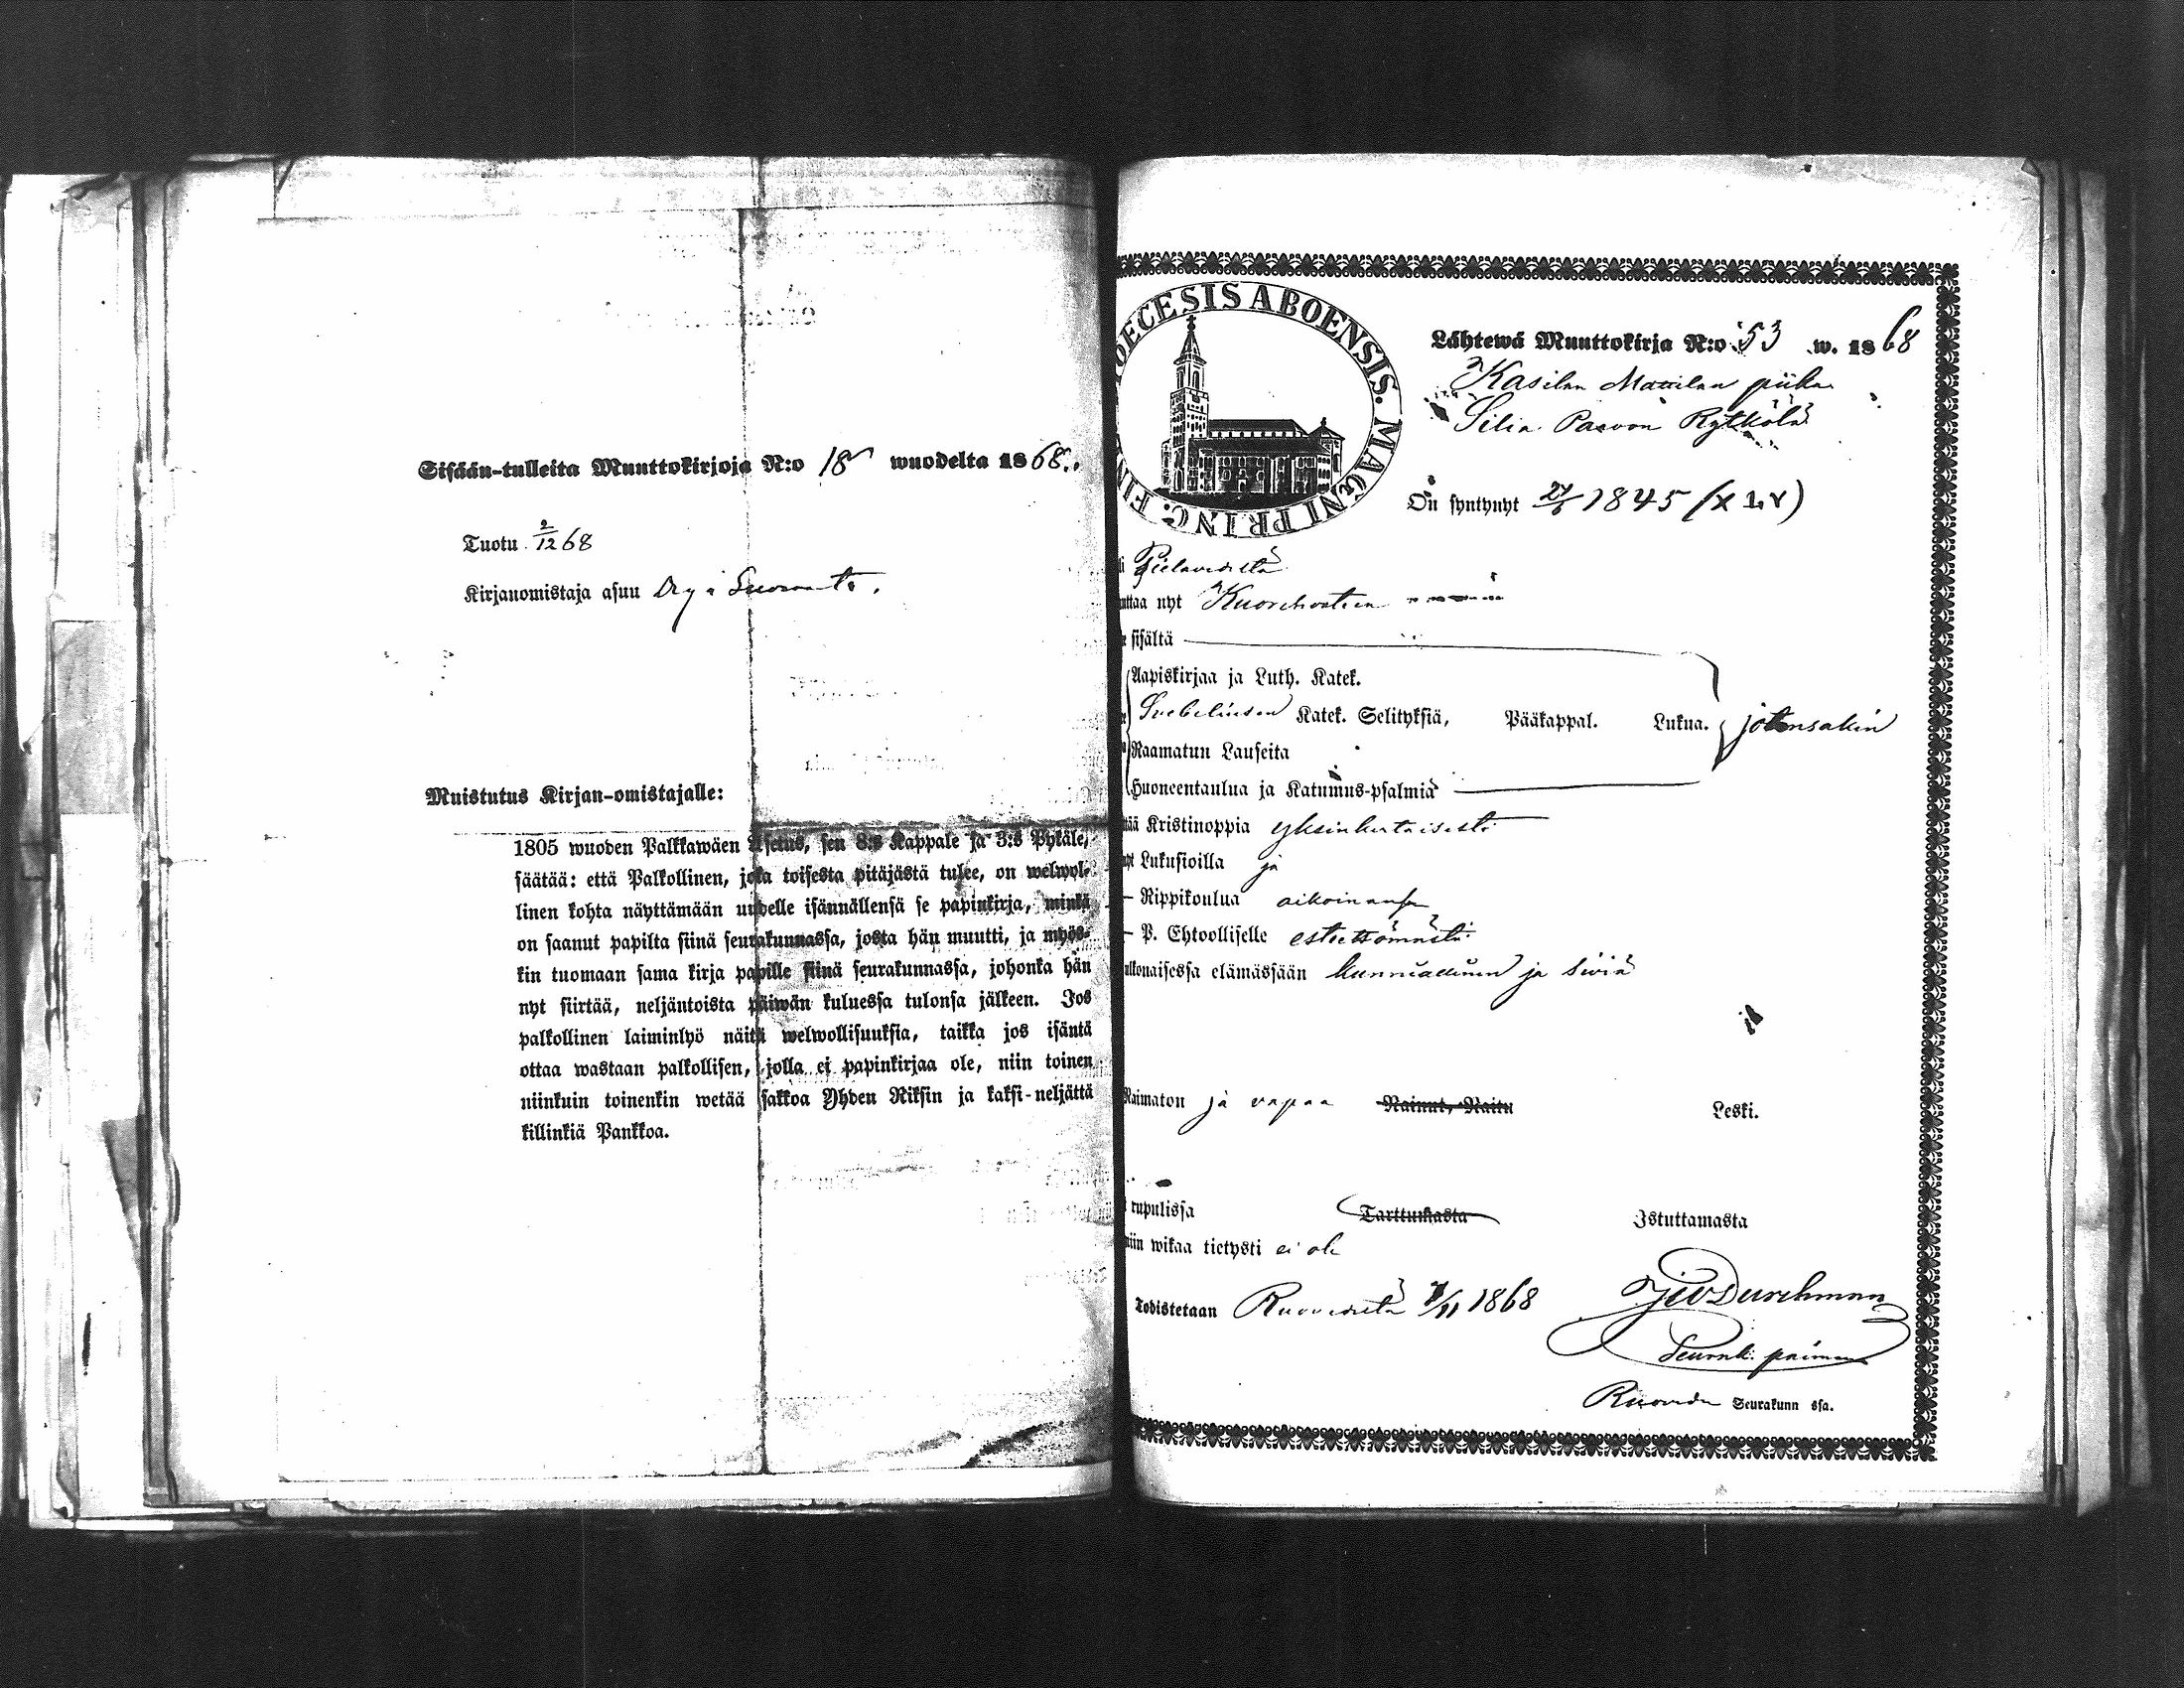 Sisään-tulleita Muuttokirjoja N:o 18 wuodelta 1868.
Tuotu 2/12 68
Kirjanomistaja asuu
Muistutus Kirjan-omistajalle:
1805 wuoden Palkkawäen Asetus, sen 8:s Kappale ja 3:s Pykäle,
säätää: että Palkollinen, joka toisesta pitäjästä tulee, on welwol-
linen kohta näyttämään uudelle isännällensä se papinkirja, minkä
on saanut papilta siinä seurakunnassa, josta hän muutti, ja myös-
kin tuomaan sama kirja papille siinä seurakunnassa, johonka hän
nyt siirtää, neljäntoista päiwän kuluessa tulonsa jälkeen. Jos
palkollinen laiminlyö näitä welwollisuuksia, taikka jos isäntä
ottaa wastaan palkollisen, jolla ei papinkirjaa ole, niin toinen
niinkuin toinenkin wetää sakkoa Yhden Riksin ja kaksi-neljättä
killinkiä Pankkoa.
OECESIS ABOENSIS. MAGNI PRINC. FIN
Lähtewä Muuttokirja N:o 53 w. 1868
Kasilan Mattilan piika
Silia Paavon Rytkölä
On syntynyt 27/6 1845
Pielavedeltä
uttaa nyt Kuoreh
sisältä
Aapiskirjaa ja Luth. Katek.
Svebeliusen Katek. Selityksiä, Pääkappal. Lukua. jotensakin
Raamatun Lauseita
Huoneentaulua ja Katumus-psalmia
tää Kristinoppia yksinkertaisesti
Lukusioilla ja
— Rippikoulua aikoinansa
— P. Ehtoolliselle esteettömästi
ulkonaisessa elämässään kunniallinen ja siviä
Naimaton ja vapaa Nainut, Naitu Leski.
rupulissa Tarttumasta Istuttamasta
niin wikaa tietysti ei ole
Todistetaan Ruovedeltä /11 1868
Durchman
Seurak. paimen
Ruoveden Seurakunn ssa.